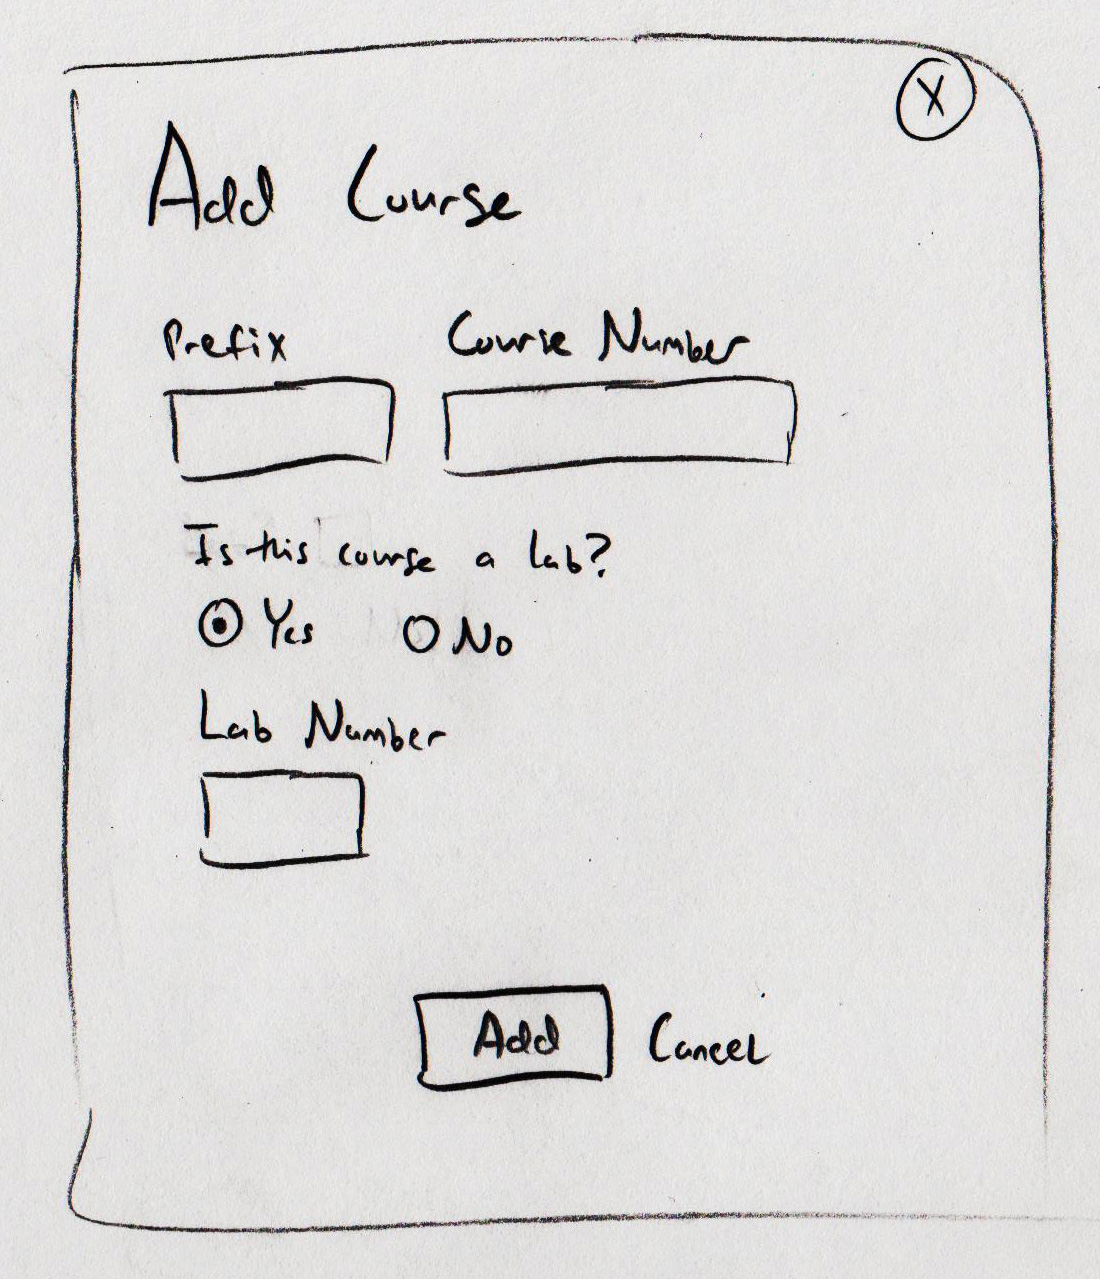 X
Add Course
Prefix Course Number
Is this course a lab?
Yes No
Lab Number
Add Cancel